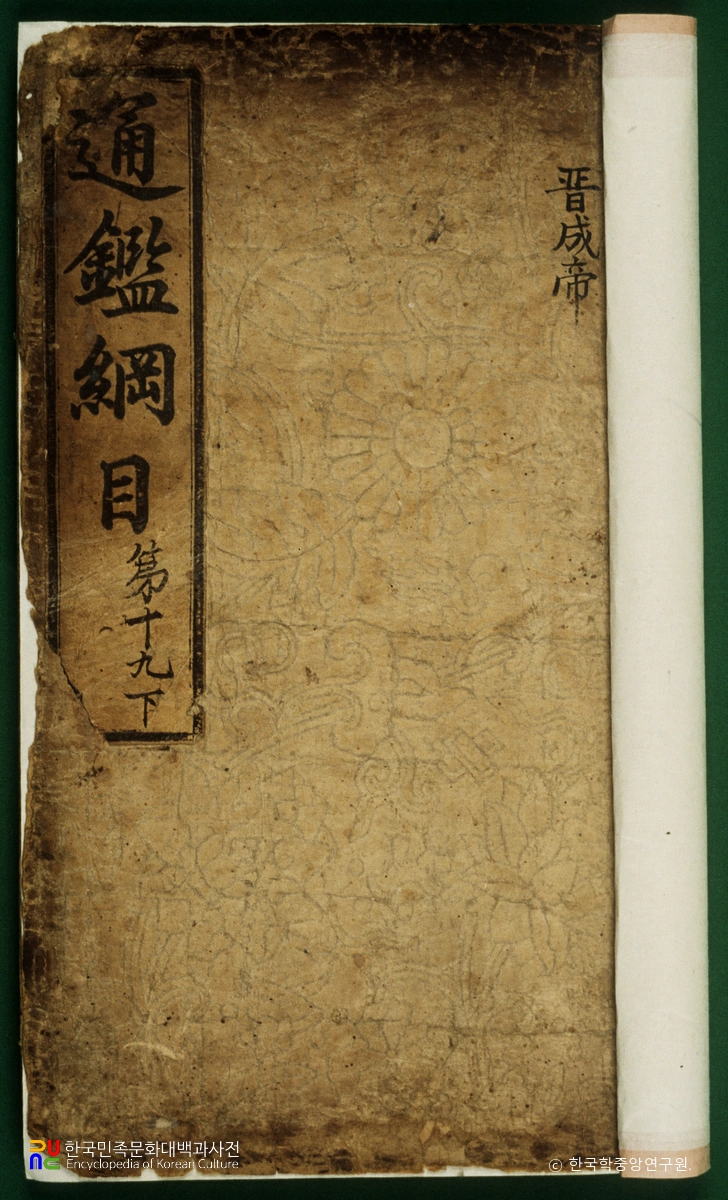 晋成帝
通鑑綱目第十九下
한국민족문화대백과사전
Encyclopedia of Korean Culture
© 한국학중앙연구원.